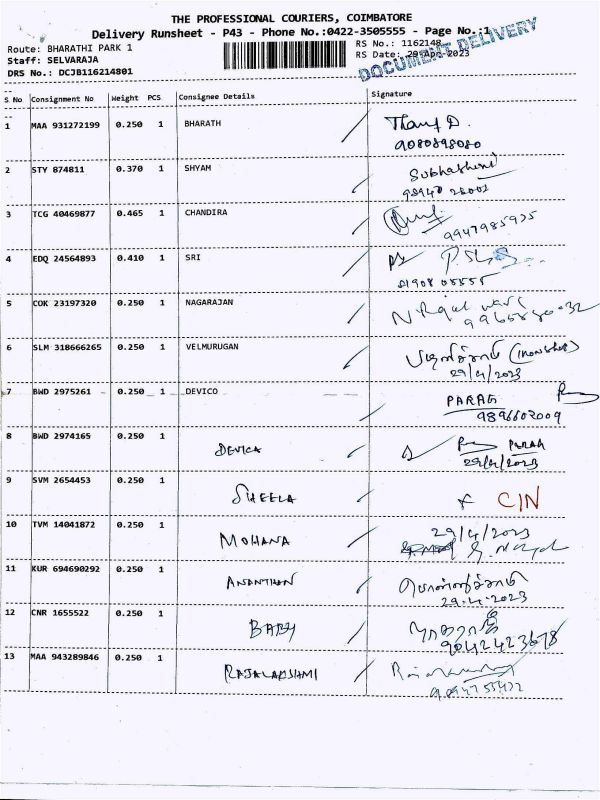 THE PROFESSIONAL COURIERS, COIMBATORE
Delivery Runsheet - P43 - Phone No.:0422-3505555 - Page No.:1
Route: BHARATHI PARK 1
RS No.: 1162148
Staff: SELVARAJA
RS Date: 29-Apr-2023
DRS No.: DCJB116214801
DOCUMENT DELIVERY
S No Consignment No Weight PCS Consignee Details Signature
1 MAA 931272199 0.250 1 BHARATH
9080898080
2 STY 874811 0.370 1 SHYAM
3 TCG 40469877 0.465 1 CHANDIRA
9947985935
4 EDQ 24564893 0.410 1 SRI
5 COK 23197320 0.250 1 NAGARAJAN
6 SLM 318666265 0.250 1 VELMURUGAN
29/4/2023
7 BWD 2975261 0.250 1 DEVICO PARAG
9896602009
8 BWD 2974165 0.250 1 DEVICA PARAG
29/4/2023
9 SVM 2654453 0.250 1 SHEELA CIN
10 TVM 14041872 0.250 1 MOHANA 29/4/2023
11 KUR 694690292 0.250 1 ANANTHAN
29.4.2023
12 CNR 1655522 0.250 1 BABY
9042423678
13 MAA 943289846 0.250 1 RAJALAKSHMI